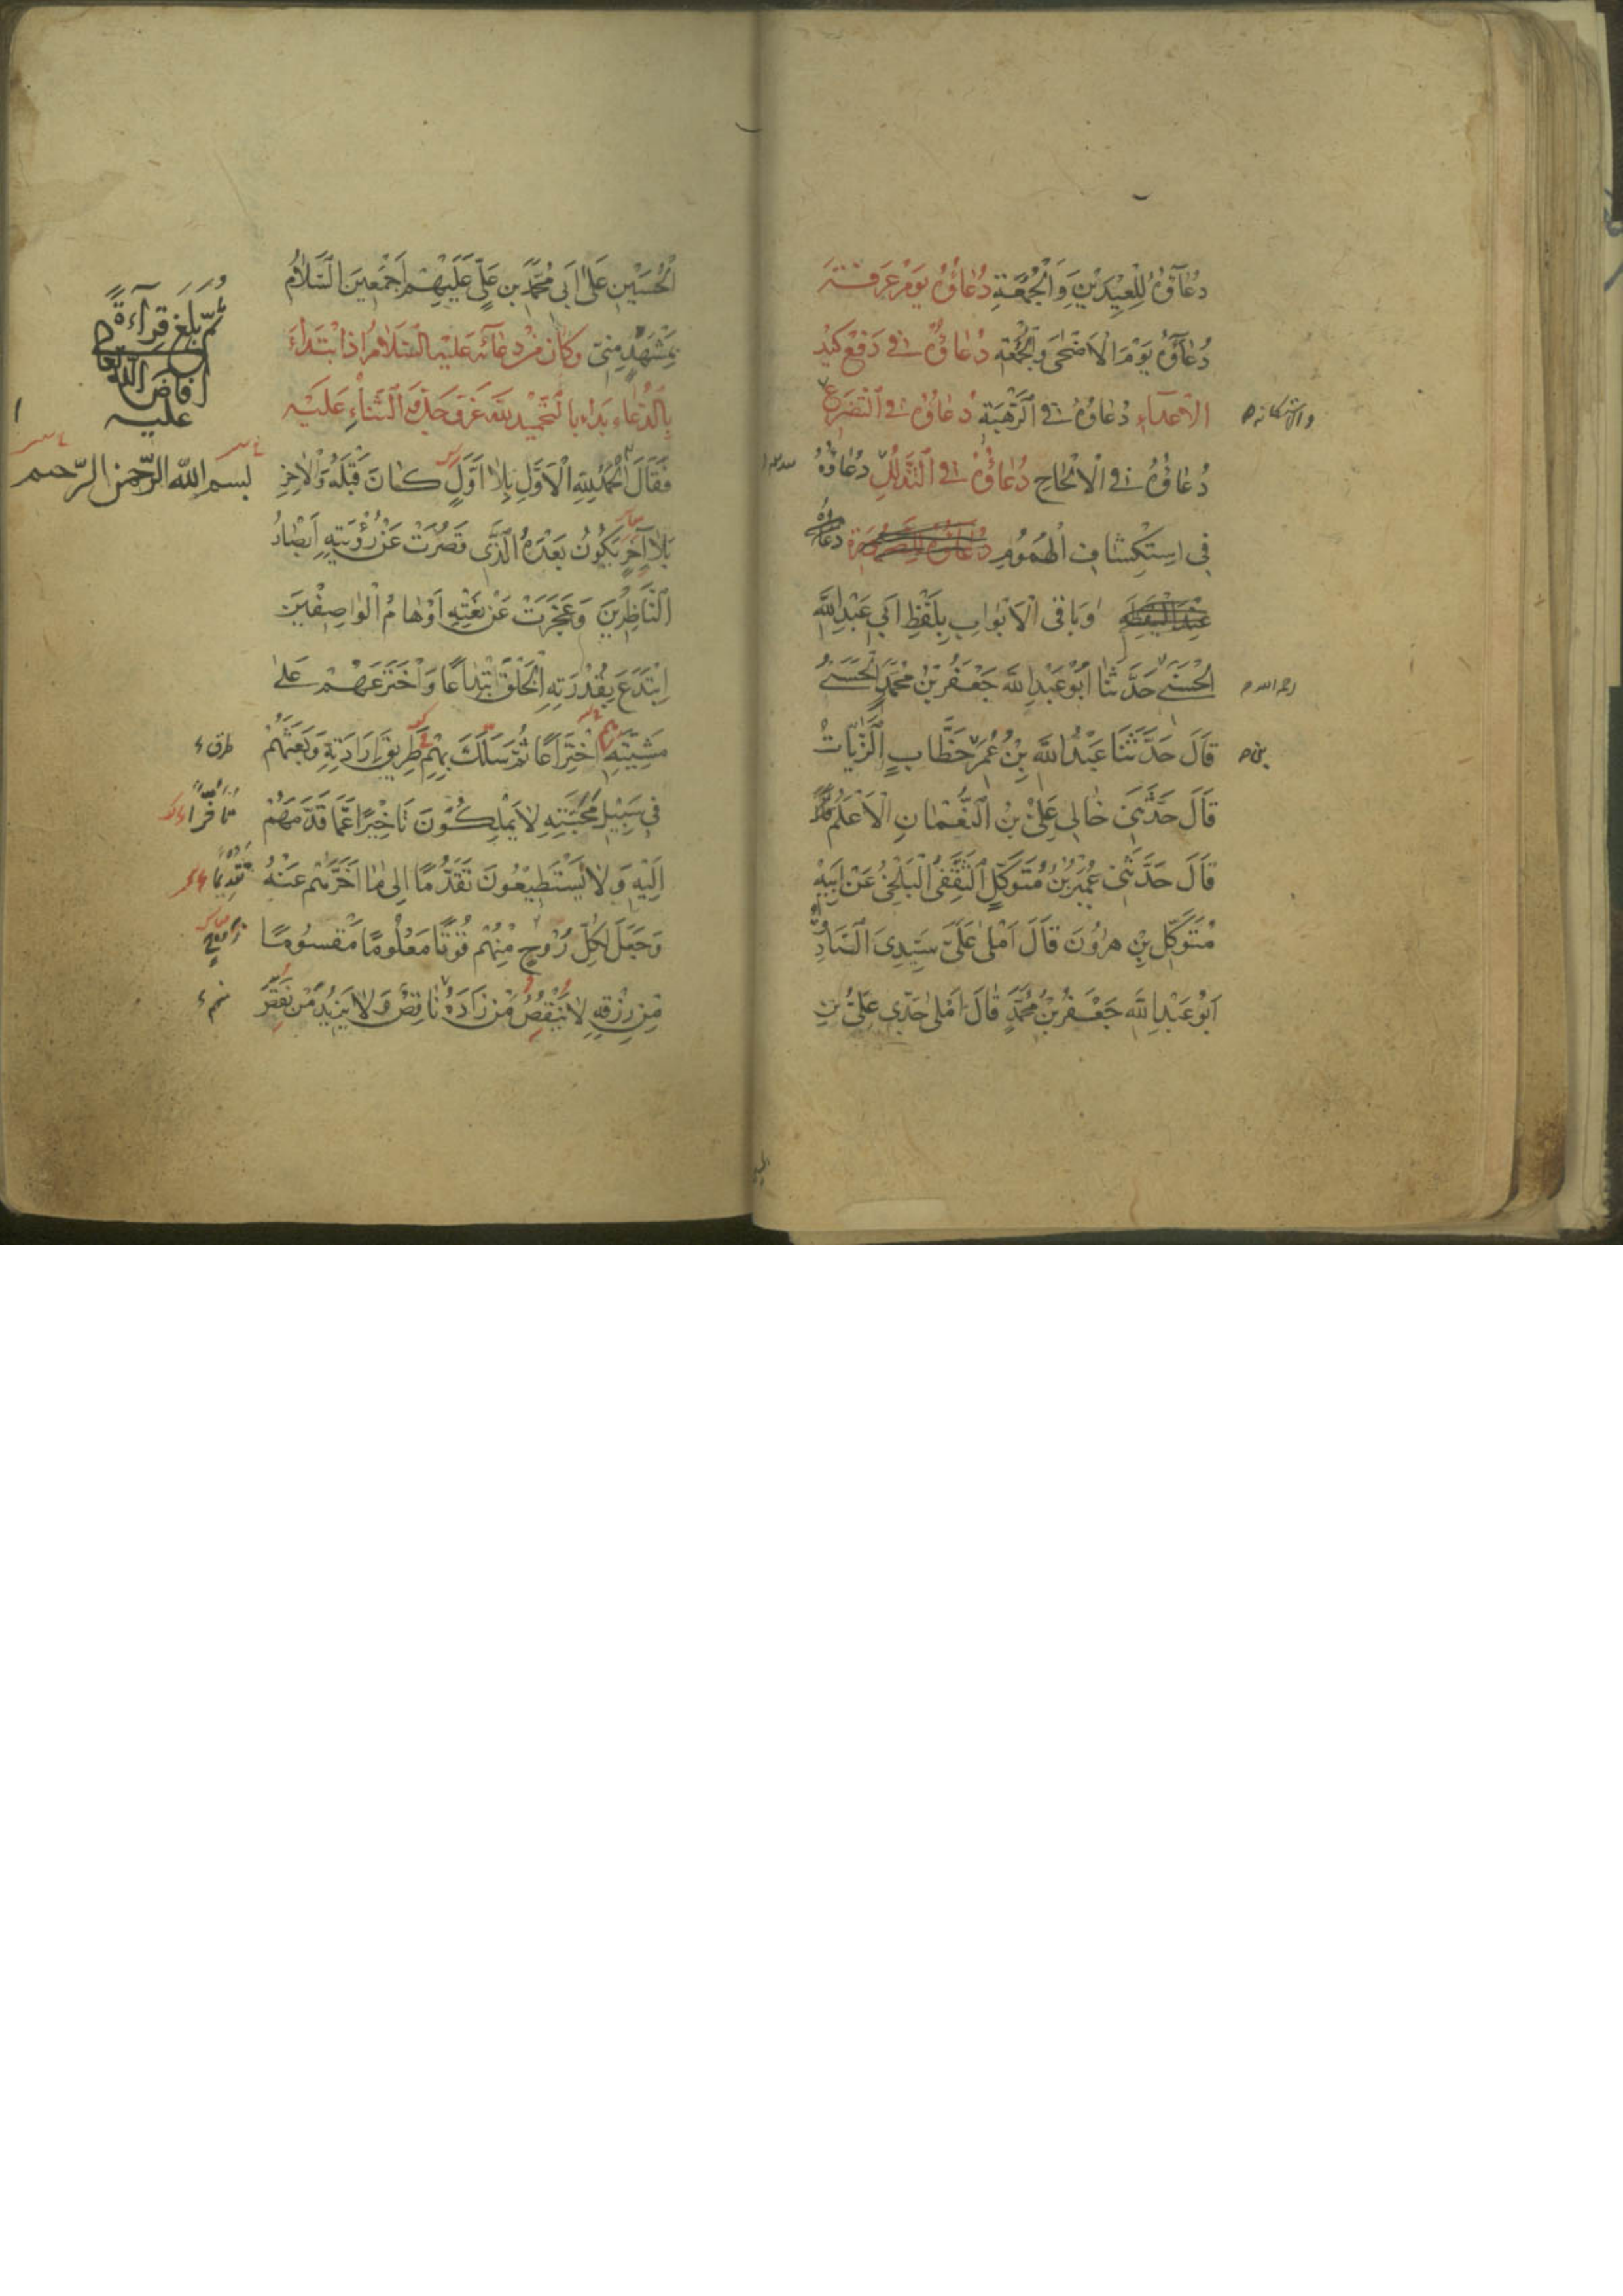 دُعَاؤُهُ لِلْعِيدَيْنِ وَالْجُمُعَةِ دُعَاؤُهُ يَوْمَ عَرَفَةَ
دُعَاؤُهُ يَوْمَ الْاَضْحٰى وَالْجُمُعَةِ دُعَاؤُهُ فِي دَفْعِ كَيْدِ
الْاَعْدَاءِ دُعَاؤُهُ فِي الرَّهْبَةِ دُعَاؤُهُ فِي التَّضَرُّعِ
والاستكانة
دُعَاؤُهُ فِي الْاِلْحَاحِ دُعَاؤُهُ فِي التَّذَلُّلِ دُعَاؤُهُ
فِي اسْتِكْشَافِ الْهُمُومِ
وَبَاقِي الْاَبْوَابِ بِلَفْظِ اَبِي عَبْدِ اللّٰهِ
الْحَسَنِيِّ حَدَّثَنَا اَبُو عَبْدِ اللّٰهِ جَعْفَرُ بْنُ مُحَمَّدٍ الْحَسَنِيُّ
رحمه الله
قَالَ حَدَّثَنَا عَبْدُ اللّٰهِ بْنُ عُمَرَ خَطَّابٍ الزَّيَّاتُ
بن
قَالَ حَدَّثَنِي خَالِي عَلِيُّ بْنُ النُّعْمَانِ الْاَعْلَمُ
قَالَ حَدَّثَنِي عُمَيْرُ بْنُ مُتَوَكِّلٍ الثَّقَفِيُّ الْبَلْخِيُّ عَنْ اَبِيهِ
مُتَوَكِّلِ بْنِ هٰرُونَ قَالَ اَمْلٰى عَلَيَّ سَيِّدِيَ الصَّادِقُ
اَبُو عَبْدِ اللّٰهِ جَعْفَرُ بْنُ مُحَمَّدٍ قَالَ اَمْلٰى جَدِّي عَلِيُّ بْنُ
الْحُسَيْنِ عَلٰى اَبِي مُحَمَّدِ بْنِ عَلِيٍّ عَلَيْهِمْ اَجْمَعِينَ السَّلَامُ
بِمَشْهَدٍ مِنِّي وَكَانَ مِنْ دُعَائِهِ عَلَيْهِ السَّلَامُ اِذَا ابْتَدَاَ
بِالدُّعَاءِ بَدَاَ بِالتَّحْمِيدِ لِلّٰهِ عَزَّ وَجَلَّ وَالثَّنَاءِ عَلَيْهِ
ثُمَّ بَلَغَ قِرَاءَةً
افاض الله تعالى
عليه
بسم الله الرّحمن الرّحيم
فَقَالَ الْحَمْدُ لِلّٰهِ الْاَوَّلِ بِلَا اَوَّلٍ كَانَ قَبْلَهُ وَالْاٰخِرِ
بِلَا اٰخِرٍ يَكُونُ بَعْدَهُ الَّذِي قَصُرَتْ عَنْ رُؤْيَتِهِ اَبْصَارُ
النَّاظِرِينَ وَعَجَزَتْ عَنْ نَعْتِهِ اَوْهَامُ الْوَاصِفِينَ
اِبْتَدَعَ بِقُدْرَتِهِ الْخَلْقَ ابْتِدَاعًا وَاخْتَرَعَهُمْ عَلٰى
مَشِيَّتِهِ اخْتِرَاعًا ثُمَّ سَلَكَ بِهِمْ طَرِيقَ اِرَادَتِهِ وَبَعَثَهُمْ
طرق
فِي سَبِيلِ مَحَبَّتِهِ لَا يَمْلِكُونَ تَاْخِيرًا عَمَّا قَدَّمَهُمْ
تاخّرا
اِلَيْهِ وَلَا يَسْتَطِيعُونَ تَقَدُّمًا اِلٰى مَا اَخَّرَهُمْ عَنْهُ
وَجَعَلَ لِكُلِّ رُوحٍ مِنْهُمْ قُوتًا مَعْلُومًا مَقْسُومًا
مِنْ رِزْقِهِ لَا يَنْقُصُ مَنْ زَادَهُ نَاقِصٌ وَلَا يَزِيدُ مَنْ نَقَصَ
منهم